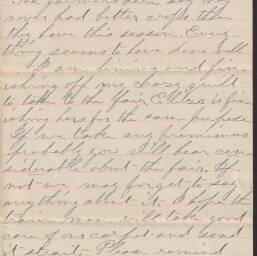 The farmers here say they
never had better crops than
they have this season. Every
thing seems to have done well.
I am lining and fin-
ishing off my chary quilt
to take to the fair. Eliza is fin
ishing hers for the same purpose
If we take any premiums
probably you will hear con-
siderable about the fair. If
not we may forget to say
anything about it. I hope the
train man will take good
care of our carpet and send
it strait. Please remind